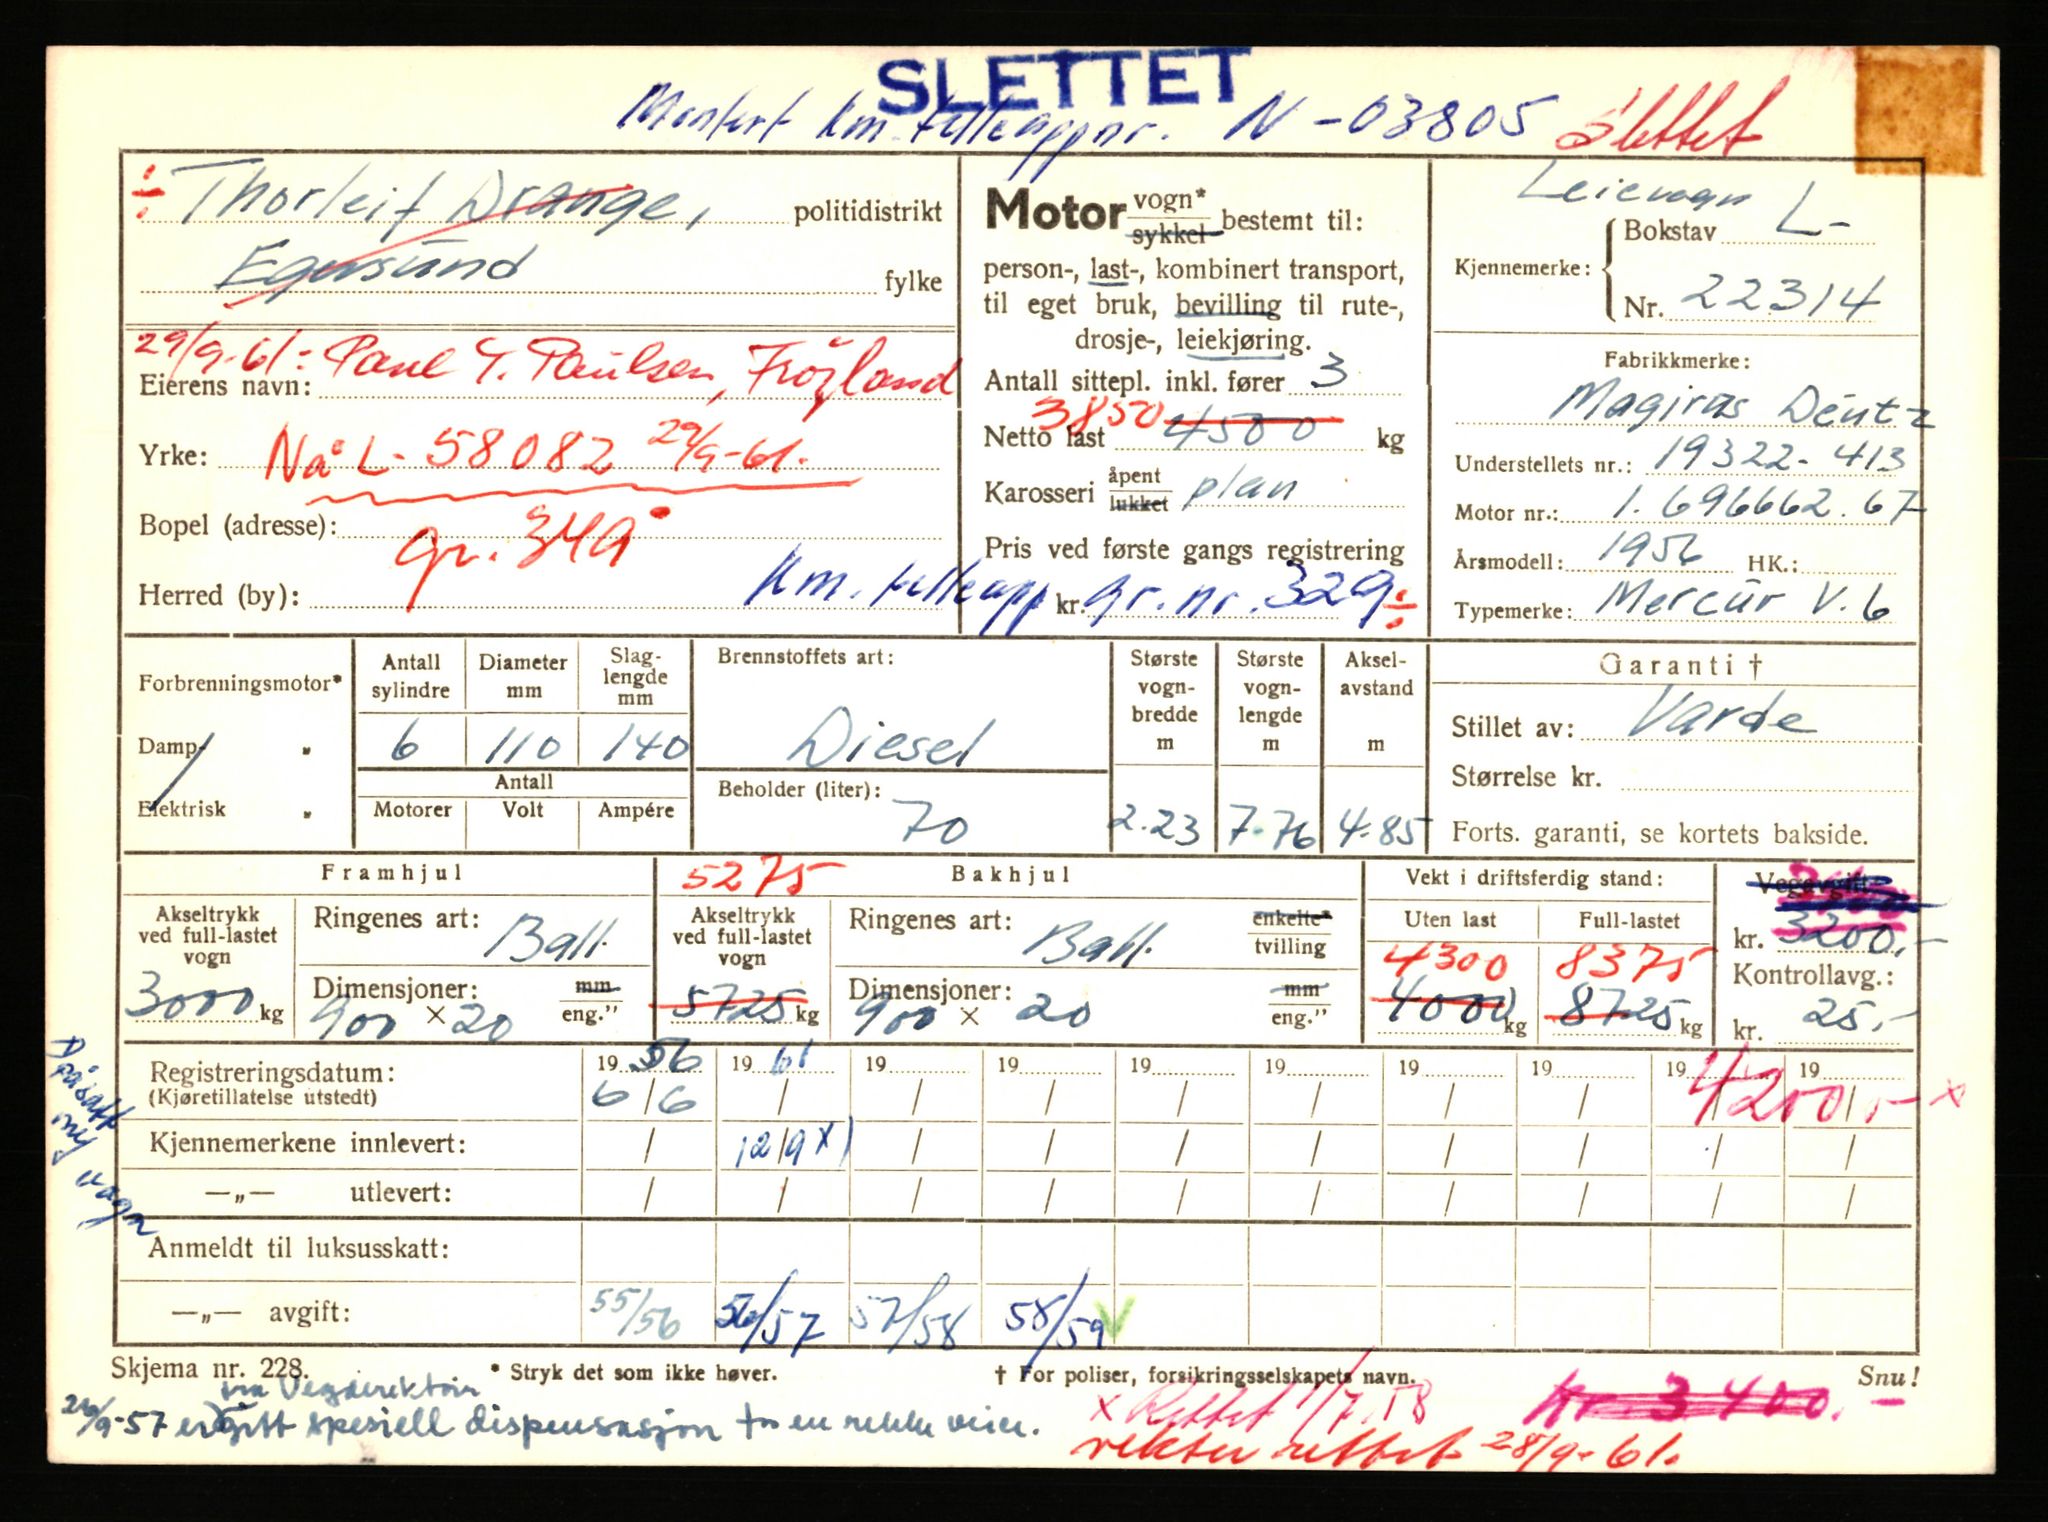 SLETTET
Montert km. telleapp nr. N-03805 Slettet
÷ Thorleif Drange, politidistrikt
Egersund fylke
29/9-61: Paul T. Paulsen, Frøyland
Eierens navn:
Yrke: Nå L- 58082 29/9-61.
Bopel (adresse): gr. 349
Herred (by):
Motor vogn* / sykkel bestemt til:
person-, last-, kombinert transport,
til eget bruk, bevilling til rute-,
drosje-, leiekjøring.
Antall sittepl. inkl. fører 3
Netto last 3850 4500 kg
Karosseri åpent / lukket plan
Pris ved første gangs registrering
Km. telleapp kr. gr.nr. 329 ÷
Leievogn
Kjennemerke: Bokstav L-
Nr. 22314
Fabrikkmerke:
Magirus Deutz
Understellets nr.: 19322-413
Motor nr.: 1.696662.67
Årsmodell: 1956 HK.:
Typemerke: Mercur V.6
Forbrenningsmotor*
Damp- "
Elektrisk "
Antall sylindre 6
Diameter mm 110
Slaglengde mm 140
Antall
Motorer Volt Ampére
Brennstoffets art:
Diesel
Beholder (liter):
70
Største vognbredde m 2.23
Største vognlengde m 7.76
Akselavstand m 4.85
Garanti †
Stillet av: Varde
Størrelse kr.
Forts. garanti, se kortets bakside.
Framhjul
Akseltrykk ved full-lastet vogn
3000 kg
Ringenes art: Ball.
Dimensjoner: mm / eng."
900 × 20
5275 Bakhjul
Akseltrykk ved full-lastet vogn
5725 kg
Ringenes art: Ball. enkelte* / tvilling
Dimensjoner: mm / eng."
900 × 20
Vekt i driftsferdig stand:
Uten last Full-lastet
4300 8375
4000 kg 8725 kg
Vegavgift:
kr. 3200,-
Kontrollavg.:
kr. 25,-
Påsatt
ny vogn
Registreringsdatum: 19 56 19 61 19 19 19 19 19 19 19 19
(Kjøretillatelse utstedt) 6/6 / / / / / / / / / 4200,- x
Kjennemerkene innlevert: / 12/9 x) / / / / / / / /
—„— utlevert: / / / / / / / / / /
Anmeldt til luksusskatt:
—„— avgift: 55/56 56/57 57/58 58/59 V
Skjema nr. 228. * Stryk det som ikke høver. † For poliser, forsikringsselskapets navn. Snu!
fra Vegdirektør
/9-57 er gitt spesiell dispensasjon for en rekke veier.
x Rettet 1/7.58 kr. 3400.-
vekter rettet 28/9-61.